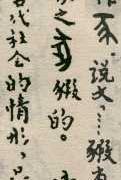 豕。說文……豭
之豭的。
古代社会的情形，